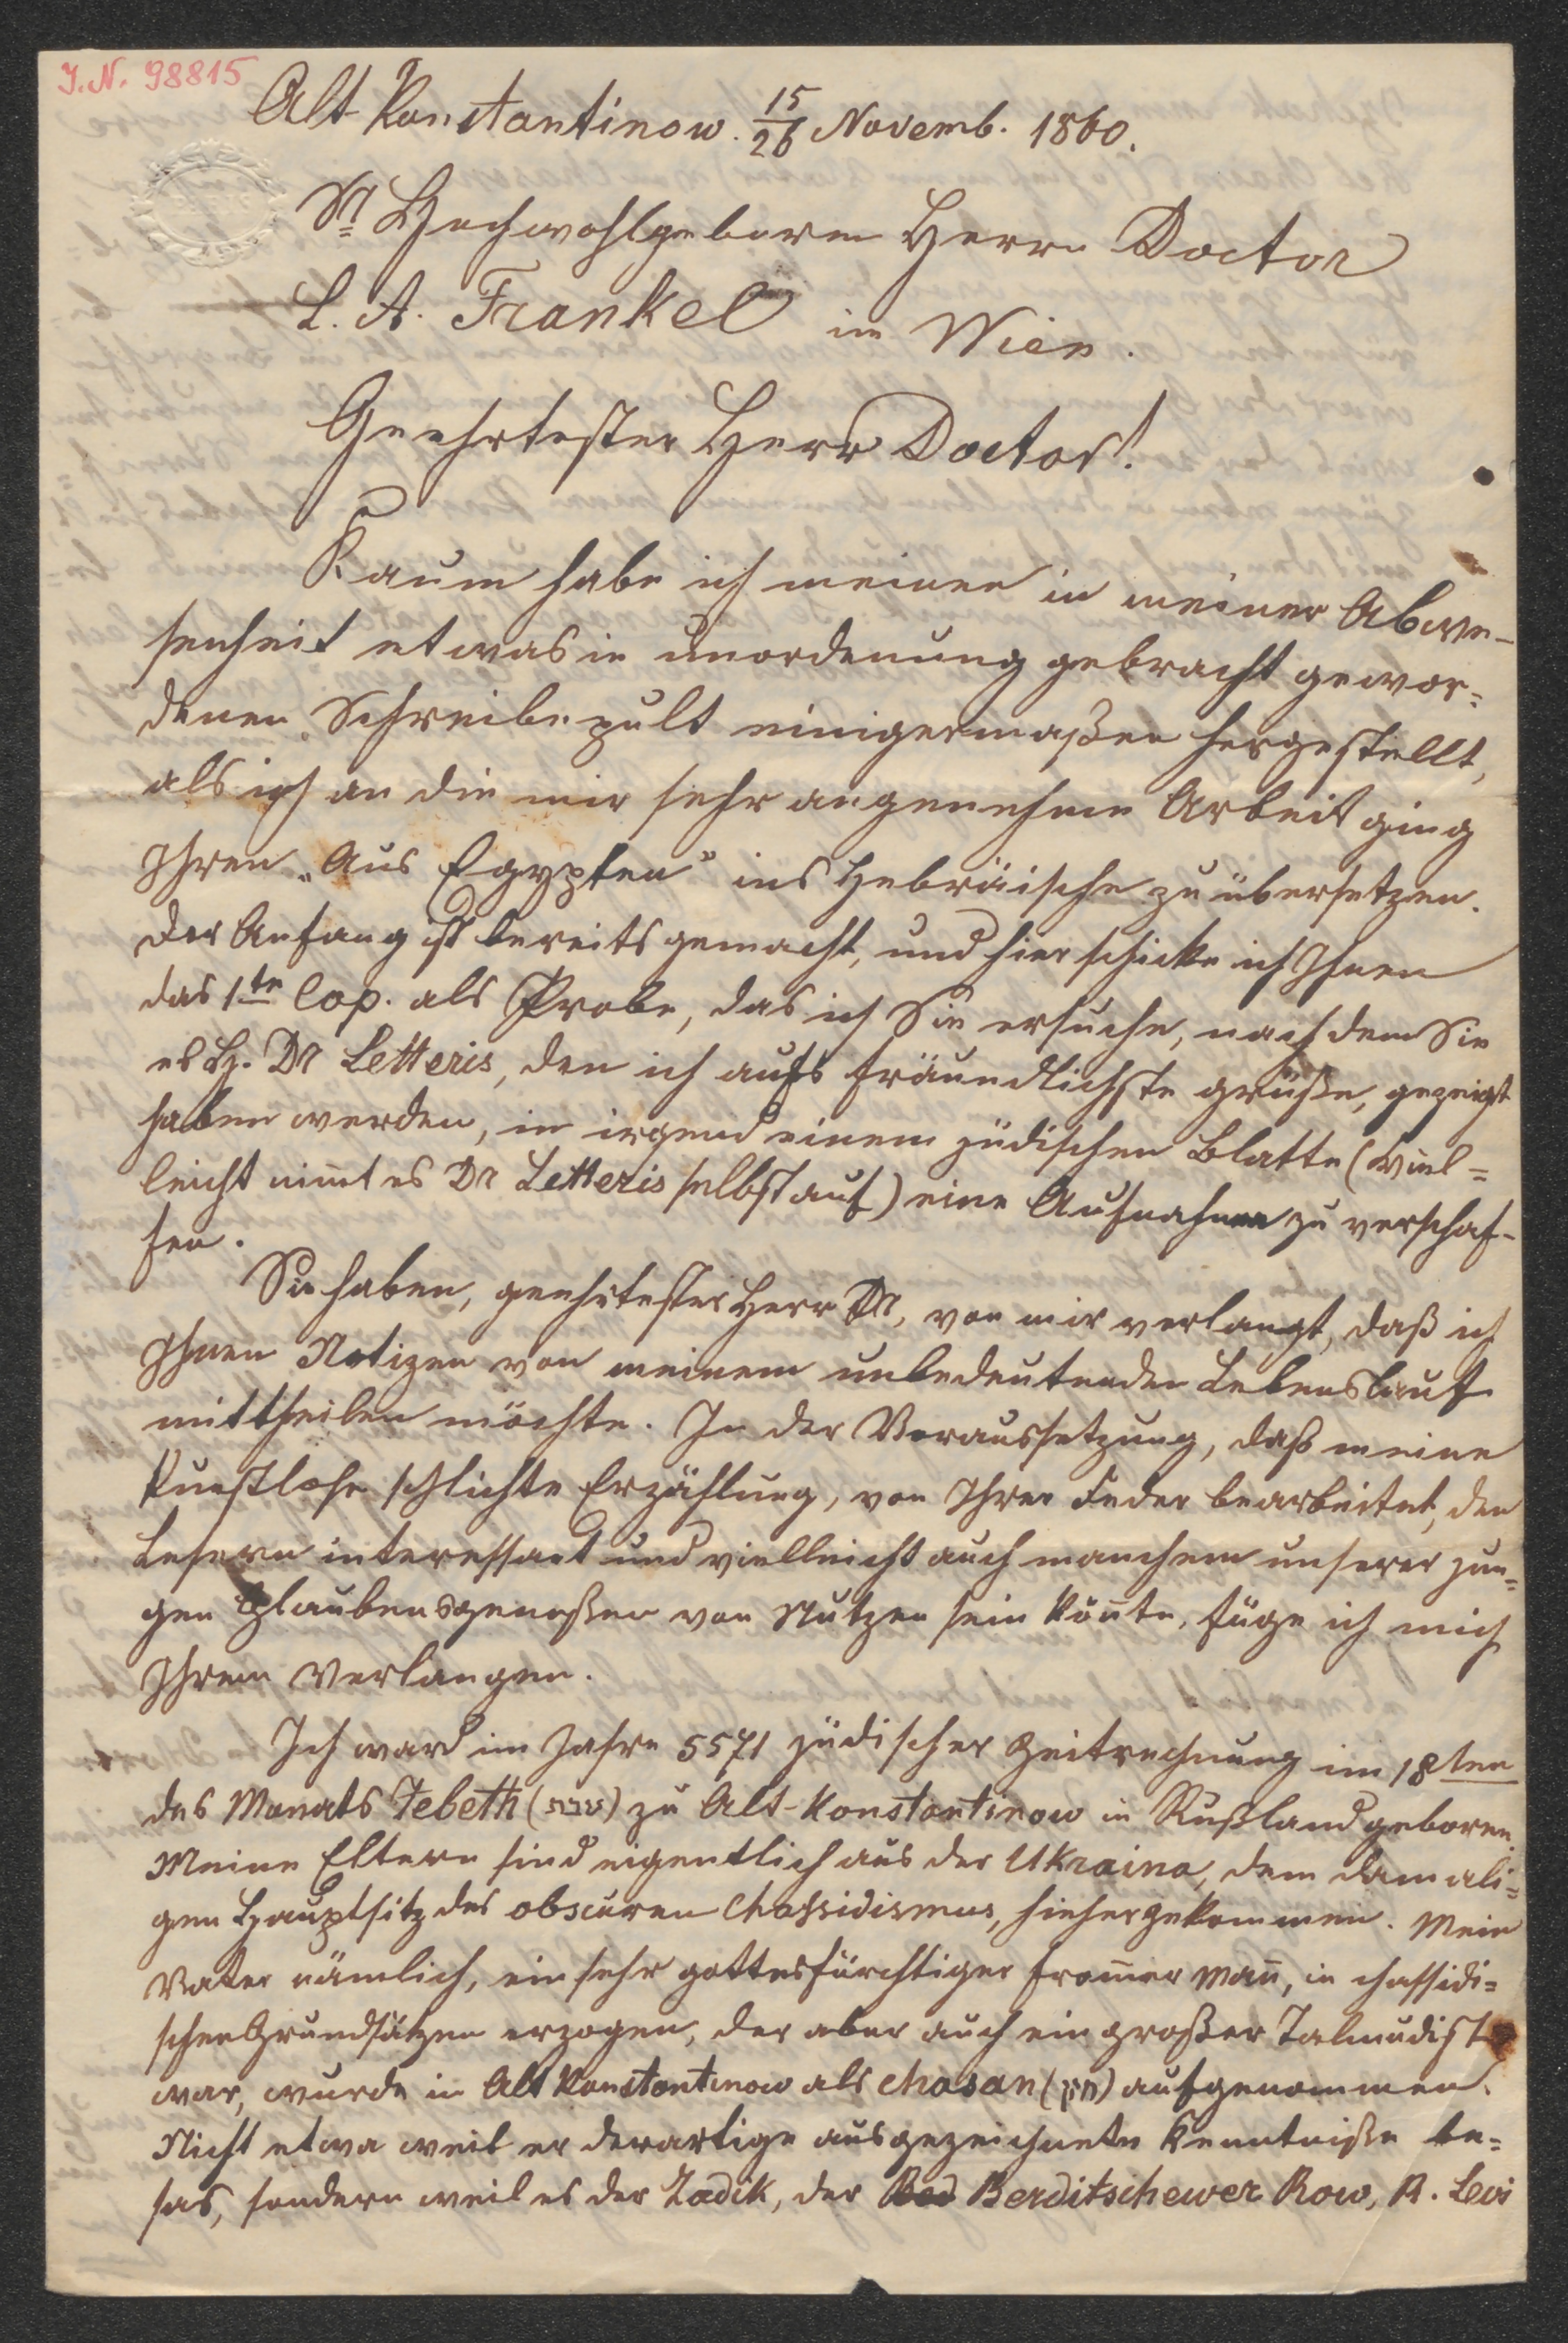 J. N. 98815
Alt-Konstantinow. 15/26 Novemb. 1860.
Sr Hochwohlgeboren Herrn Doctor
L. A. Frankel in Wien.
Geehrtester Herr Doctor!
Kaum habe ich meinen in meiner Abwe-
senheit etwas in unordenung gebracht gewor=
denen Schreibepult einigermaßen hergestellt,
als ich an die mir sehr angenehme Arbeit ging
Ihren „Aus Egypten" ins Hebräische zu übersetzen.
Der Anfang ist bereits gemacht, und hier schicke ich Ihnen
das 1te Cap. als Probe, das ich Sie ersuche, nach dem Sie
es H. Dr Letteris, den ich aufs fräundlichste grüße, gezeigt
haben werden, in irgend einem jüdischen Blatte (viel=
leicht nim̄t es Dr Letteris selbst auf) eine Aufnahme zu verschaf-
fen.
Sie haben, geehrtester Herr Dr, von mir verlangt, daß ich
Ihnen Notizen von meinem unbedeutenden Lebenslauf
mittheilen möchte. In der Voraussetzung, daß meine
kunstlose schlichte Erzählung, von Ihrer Feder bearbeitet, den
Lesern interessant und vielleicht auch manchem unserer jun=
gen Glaubensgenoßen von Nutzen sein kön̄te, füge ich mich
Ihrem Verlangen.
Ich ward im Jahre 5571 jüdischer Zeitrechnung im 18ten
des Monats Tebeth (טבת) zu Alt-Konstantinow in Rußland geboren.
Meine Eltern sind eigentlich aus der Ukraina, dem damali=
gen Hauptsitz des obscuren Chassidismus, hieher gekommen. Mein
Vater nämlich, ein sehr gottesfürchtiger from̄er Man̄, in chassidi=
schen Grundsätzen erzogen, der aber auch ein großer Talmudist
war, wurde in Alt Konstantinow als Chasan (חזן) aufgenommen.
Nicht etwa weil er derartige ausgezeichnete Kenntniße be=
sas, sondern weil es der Zadik, der Bed Berditschewer Row, R. Levi